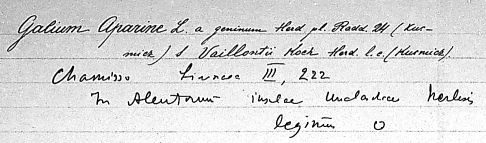 Galium Aparine L. a geninum Herd pl. Radd. 24 (Kus-
micz) s Vaillontii Koch Herd. l.c. (Kusmicz).
Chamisso Linnaea III, 222
In Aleutorum insulae Unalaschca herbis
legimus O